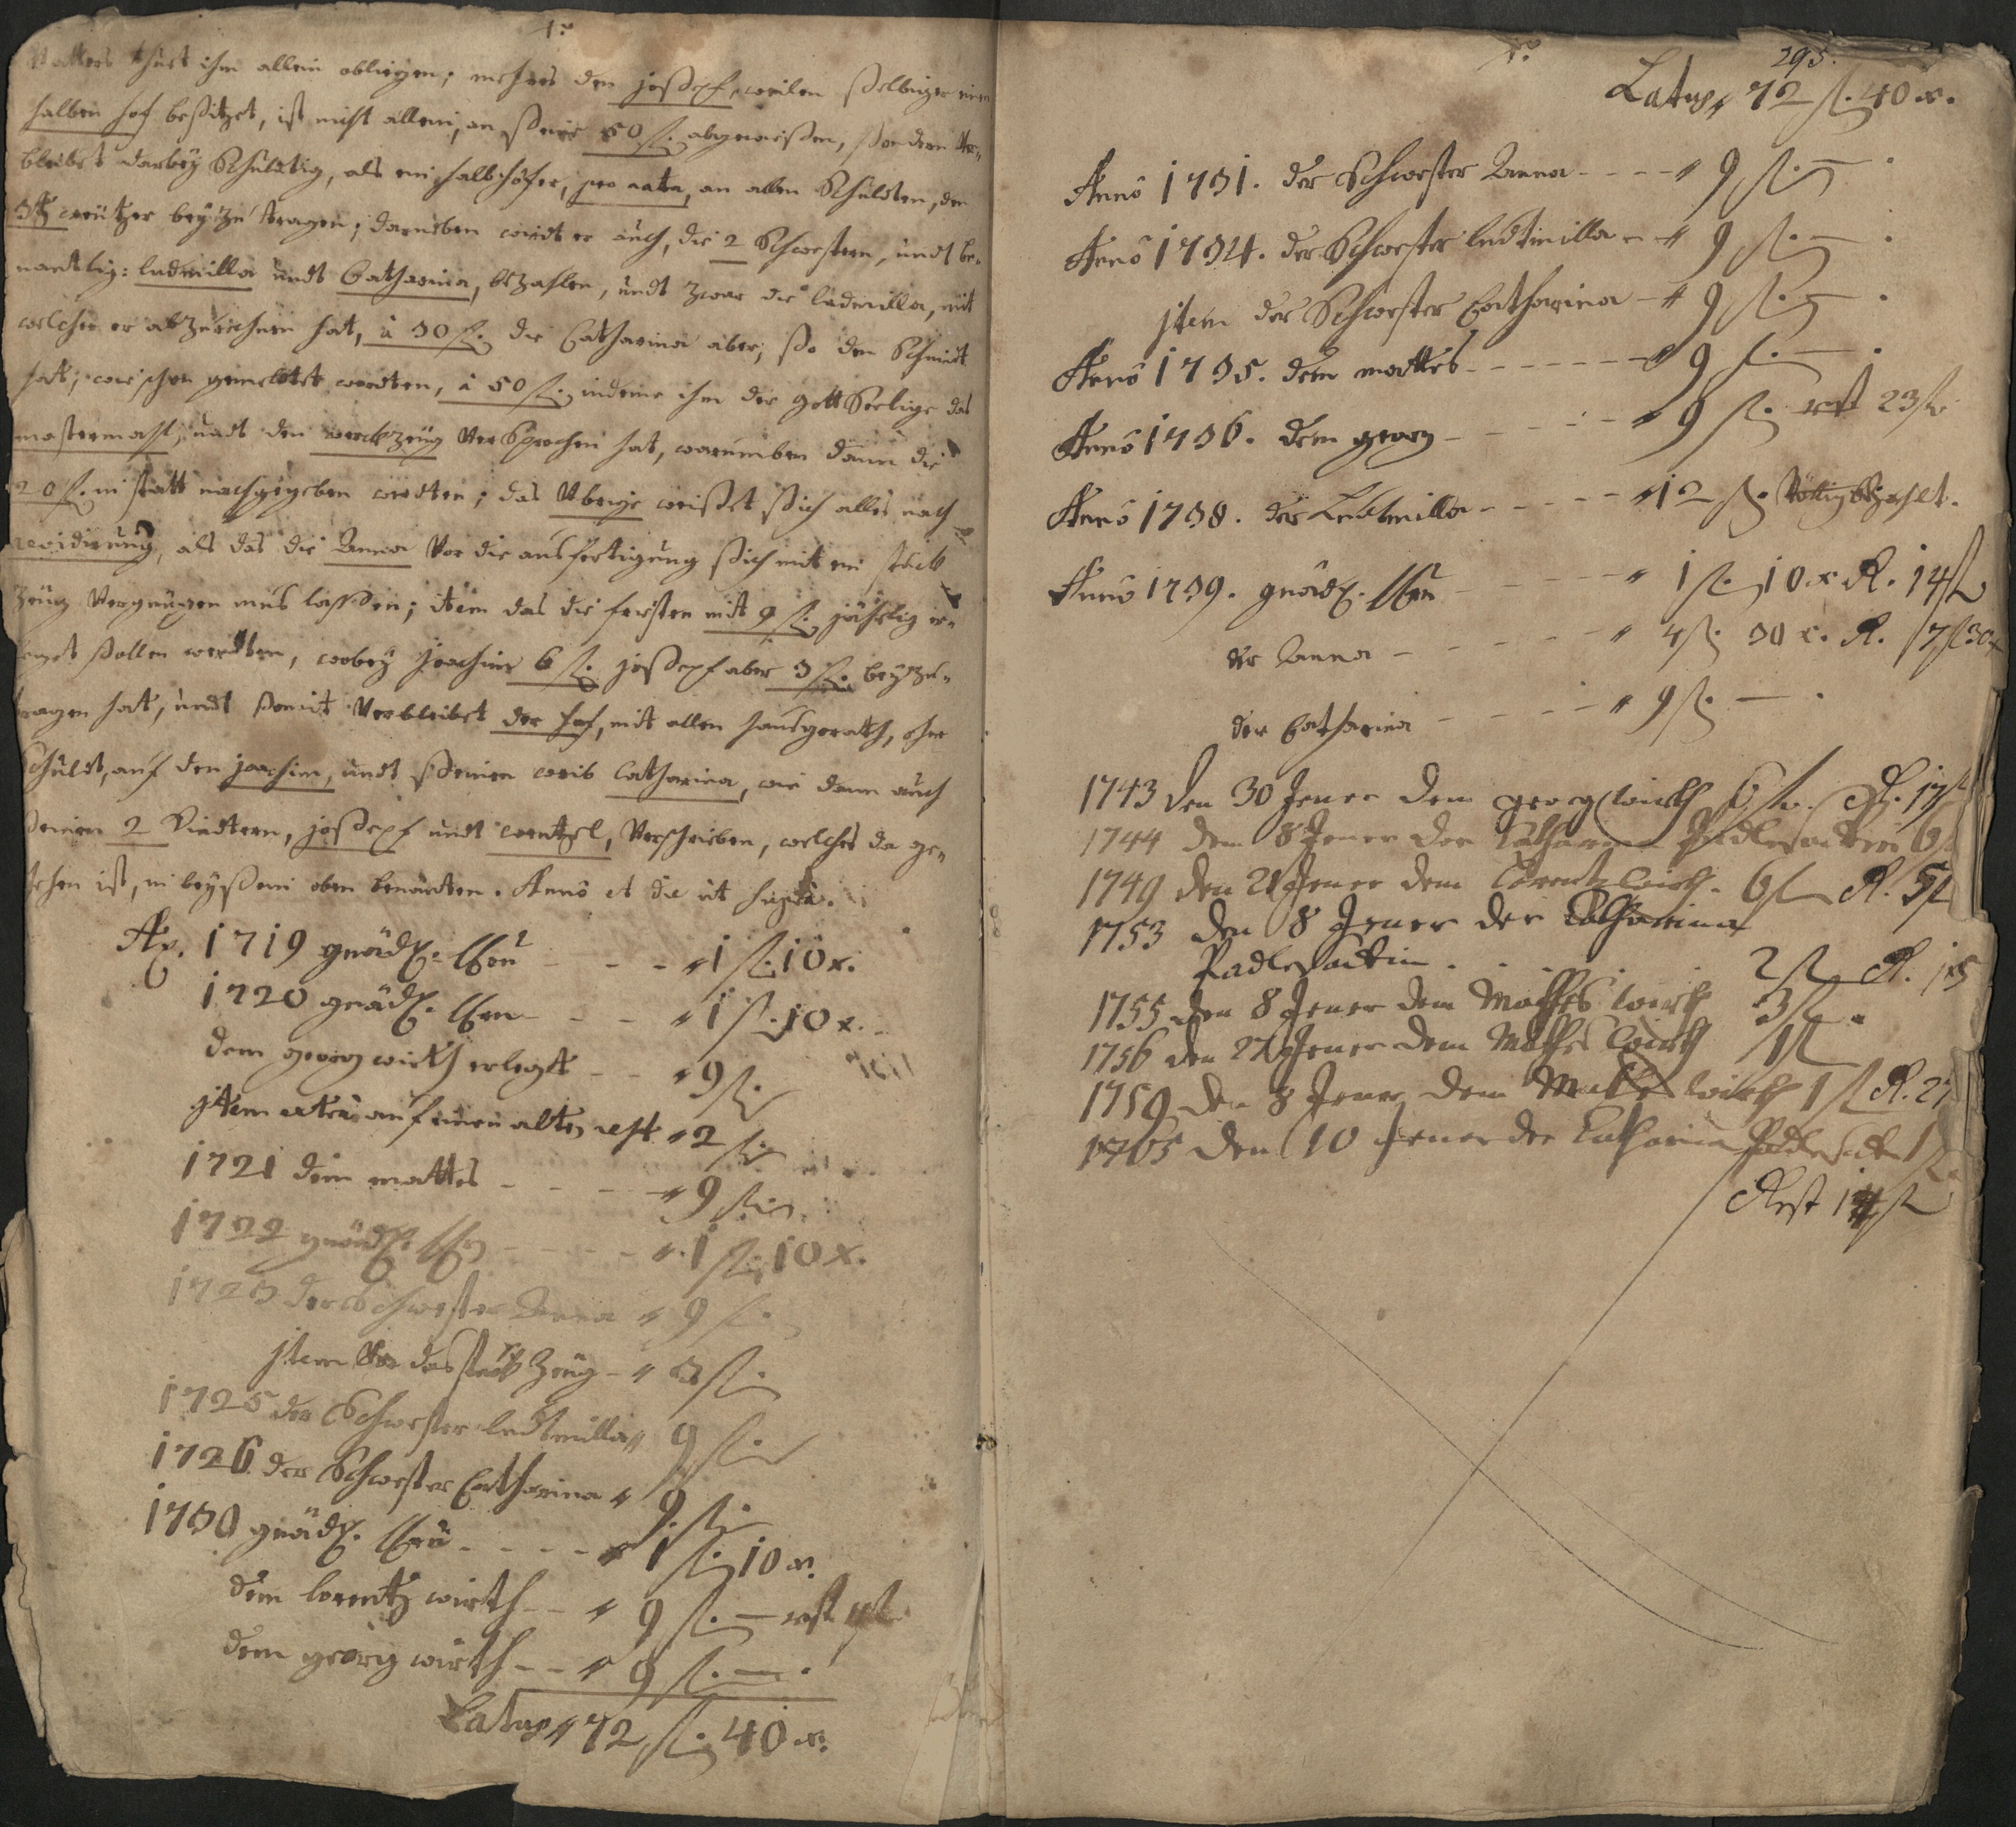 Vatters thuet ihm allein obliegen; mehres den joßepf, weilen ßelbiger einen
halben hof beßitzet, ist nicht allein, an ßeine 50 fl. abgewißen, ßondern ver-
bleibet darbeÿ Schuldtig, als ein halbhöfer, pro rata, an allen Schuldten, den
creützer beÿ zu tragen; darneben wirdt er auch, die 2 Schwestern, undt be-
nandtlig: ludmilla undt Catharina, bezahlen, undt zwar die ludmilla, mit
welcher er abzurechnen hat, à 30 fl. die Catharina aber, ßo den Schmidt
hat, wie schon gemeldtet worden, à 50 fl. indeme ihm der gott Seelige das
undt den werckzeüg Versprochen hat, warumben dann die
20 fl. in statt nachgegeben werdten; das Vbrige weißet ßich alles nach
revidirung, als das die Anna Vor die ausfertigung ßich mit ein stuck
Zeüg Vergnügen mus lassen; item das die fristen mit 9 fl. jährlig er-
leget ßollen werdten, wobeÿ joachim 6 fl. joßepf aber 3 fl. beÿzu-
tragen hat, undt ßomit Verbleibet der hof, mit allen hausgerath, ohne
schuldt, auf den joachim, undt ßeinen weib Catharina, wie dann auch
ßeinen 2 Kindtern, joßepf undt wentzel, Verschrieben, welches da ge-
schehen ist, in beÿßein oben benandten. Anno et die ut supra.
Ao. 1719 gnädg. - - - 1 fl. 10 x.
1720 gnädg. - - - 1 fl. 10 x.
dem georg wirth erlegt - - 9 fl.
jtem extra auf einen alten rest 2 fl.
1721 dem mattes - - - - 9 fl.
1722 gnädg. - - - - 1 fl. 10 x.
1723 der Schwester Anna 9 fl.
jtem Vor das stuck Zeüg - 3 fl.
1725 der Schwester ludtmilla 9 fl.
1726 der Schwester Catharina 9 fl.
1730 gnädg. - - - - 1 fl. 10 x.
dem lorentz wirth - - 9 fl. — rest 4 fl.
dem georg wirth - - 9 fl. —
Latus 72 fl. 40 x.
295.
Latus 72 fl. 40 x.
Anno 1731. der Schwester Anna - - - - 9 fl. —
Anno 1734. der Schwester ludtmilla - 9 fl. —
jtem der Schwester Catharina - 9 fl. —
Anno 1735. dem mattes - - - - - - 9 fl. —
Anno 1736. dem georg - - - - - 9 fl. rest 23 fl.
Anno 1738. der Ludtmilla - - - - - 12 fl. Völlig bezahlt.
Anno 1739. gnädg. - - - - 1 fl. 10 x R. 14 fl.
der Anna - - - - - 4 fl. 30 x. R. 7 fl 30 x
der Catharina - - - - - 9 fl. —
1743 den 30 Jener dem georg wirth 6 fl. R. 17 fl
1744 den 8 Jener der Catharina Padlesackin 6 fl
1749 den 21 Jener dem Lorentz wirth. 6 fl R. 5 fl
1753 den 8 Jener der Catharina
Padlesackin . . . . . 2 fl R. 15
1755 den 8 Jener dem Mathes wirth 3 fl.
1756 den 27 Jener dem Mathes wirth 1 fl
1759 den 8 Jener dem Mathes wirth 1 fl R. 21
1765 den 10 Jener der Catharina 1 fl.
Rest 14 fl